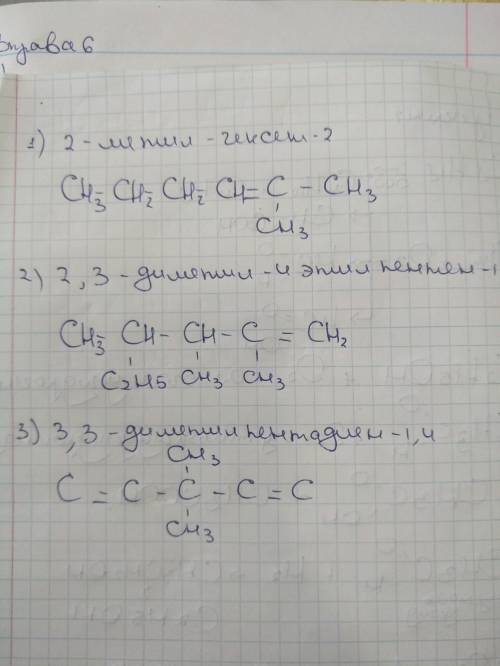 Вправа 6
1) 2-метил-гексен-2
CH3-CH2-CH2-CH=C-CH3
CH3
2) 2,3-диметил-4 этил пентен-1
CH3-CH-CH-C=CH2
C2H5 CH3 CH3
3) 3,3-диметил пентадиен-1,4
CH3
C=C-C-C=C
CH3